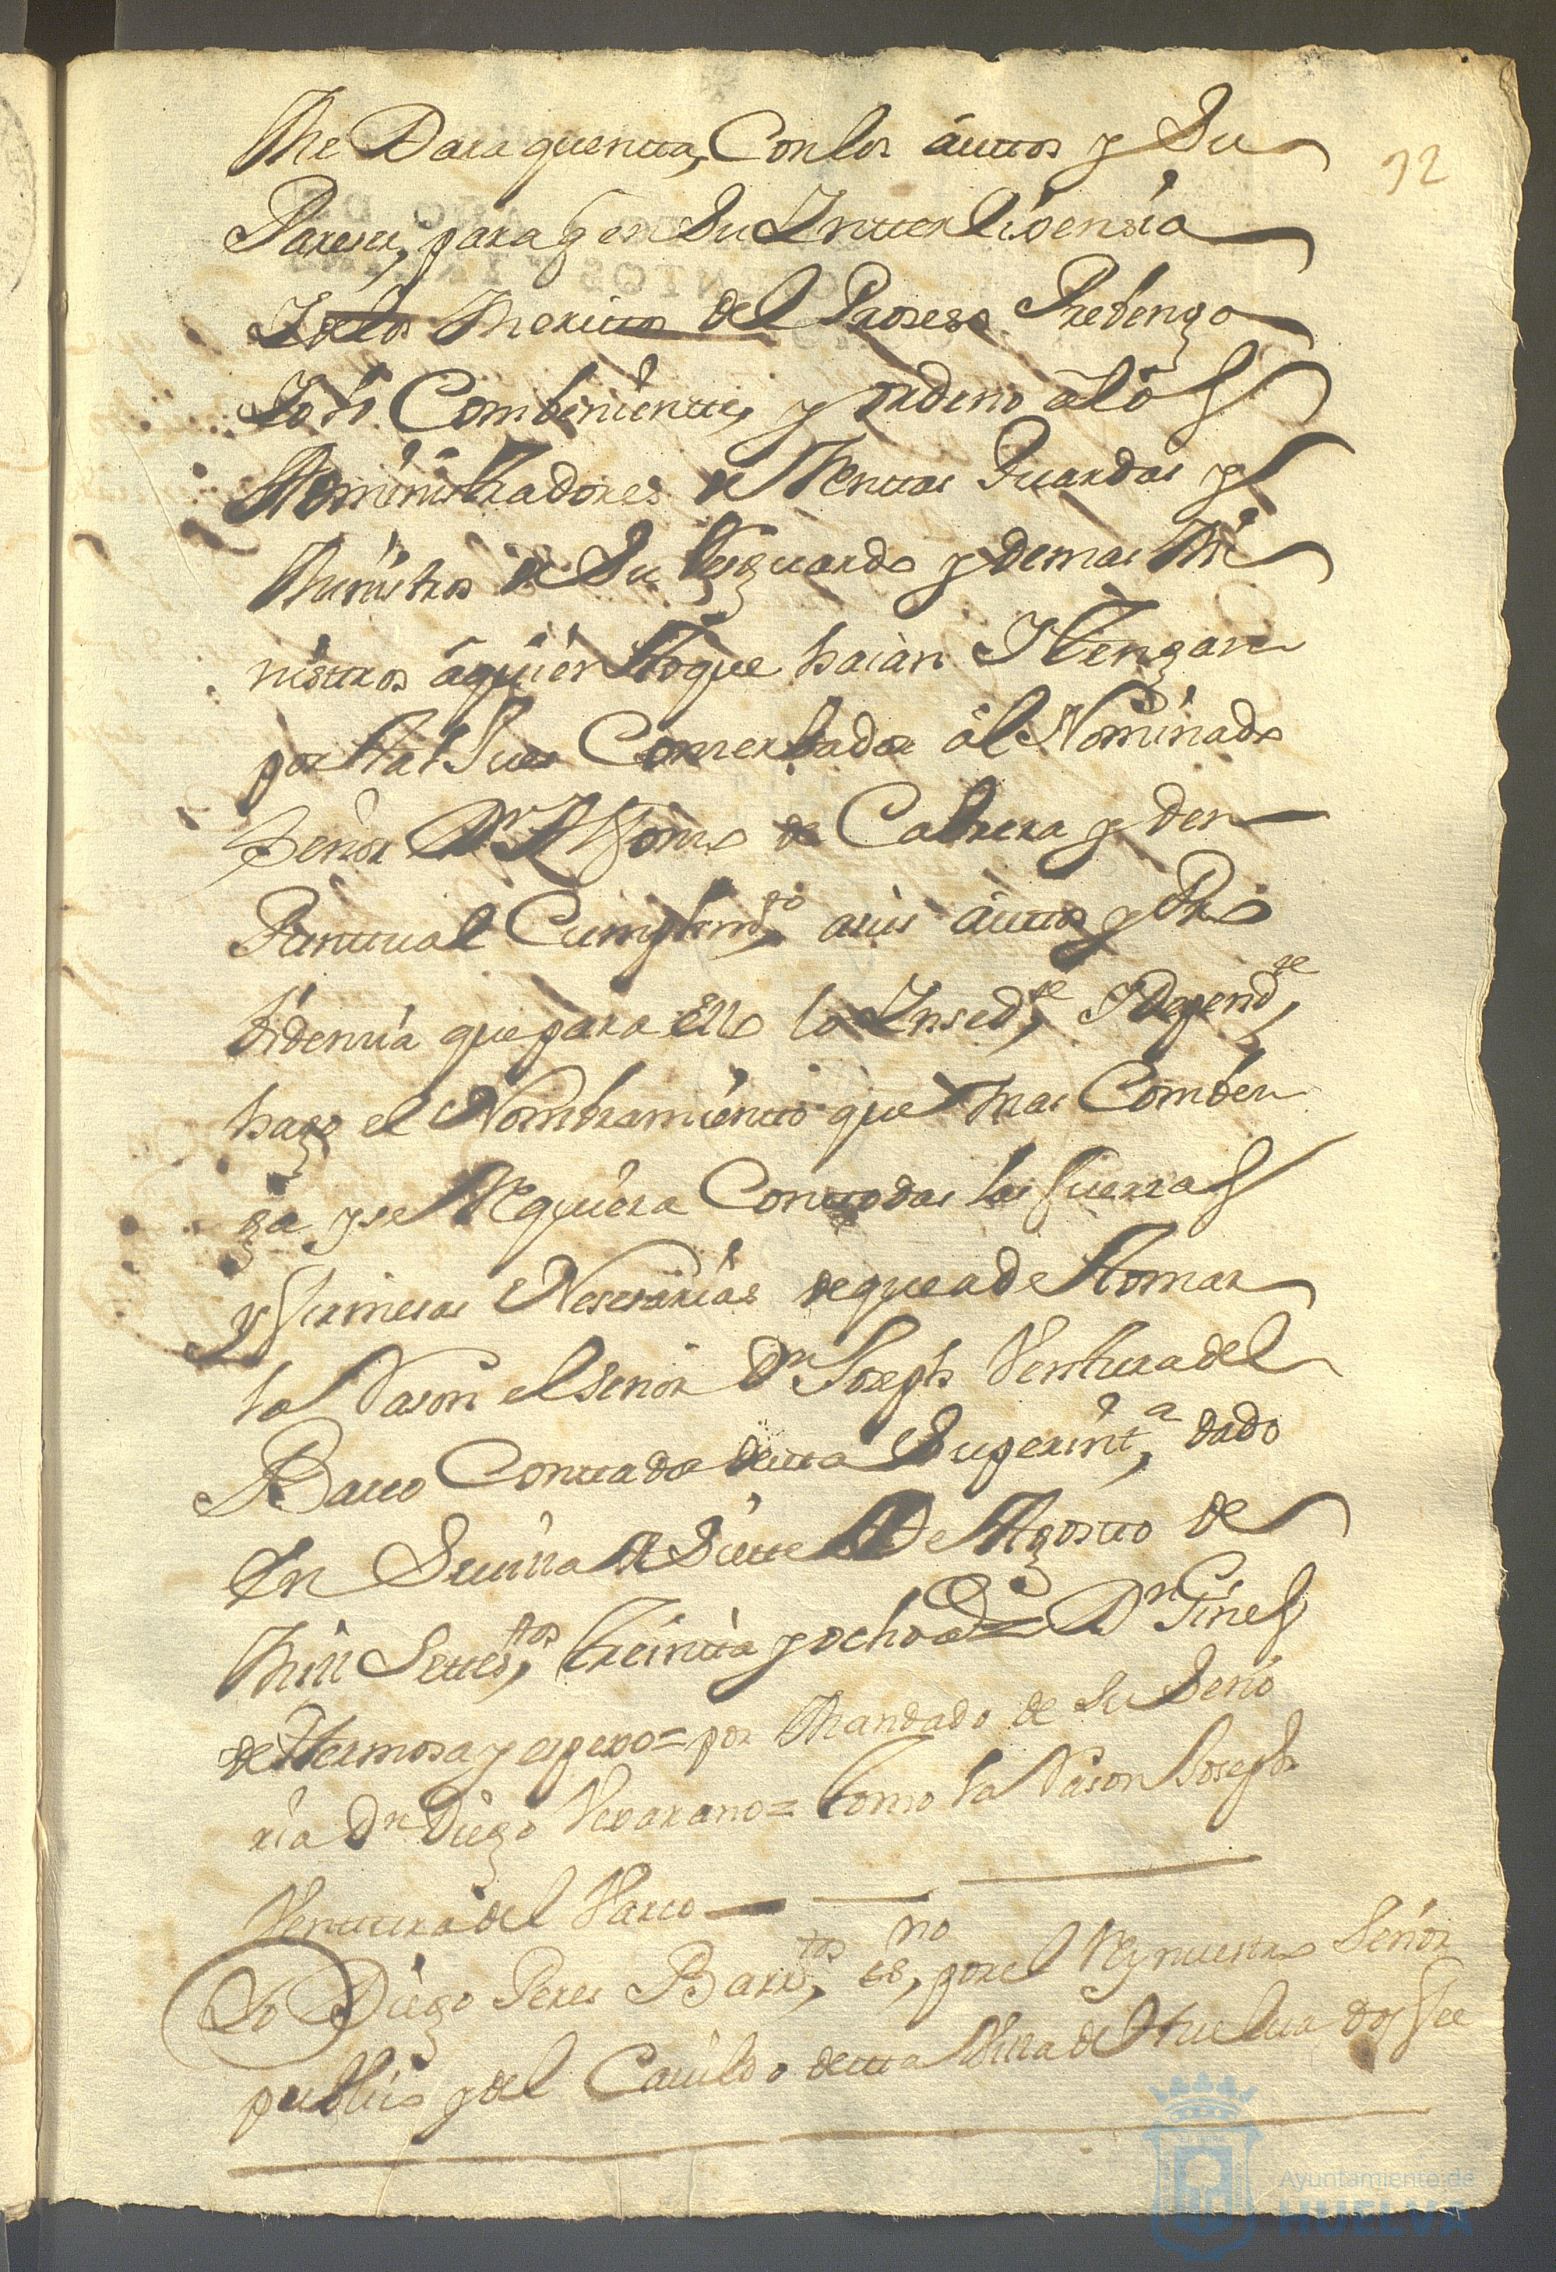 Me Dara quentta, Con los áuttos y Su
Pareser, para q en Su Intterlisensia
I de los Meritos del Proseso Prebenga
Lo q Combeniente, y ordeno álos
Administradores de Renttas Guardas y
Ministros de Su Resguardo y demas Mi
nisttros áquien ttoque haian I ttengan
por ttal Juez Comserbador ál Nominado
Señor Dn Alfonso de Cabrera y den
Punttual Cumplimto, asus áuttos y Pro
bidencia que para Ello lo Insedte, I dependte,
hago el Nombramientto que mas Comben
ga y se Requiera Con ttodas las fuerzas
y firmesas Nesesarias de que a de ttomar
la Rason el Señor Dn Joseph Ventura del
Barco Conttador de tta Superintta, dado
En Sevilla A Siette De Agostto de
Mill Settestos, treintta y ocho as = Dn Gines
de Hermosa y espexo = por Mandado de Su Seño
ria Dn Diego Verarano = tomo la Rason Joseph
Venttura del Varco
Yo Diego Peres Barrtos, esno, por el Rey nuestro Señor
publico y del Cavildo de tta Villa de Huelva doy fee
12
Ayuntamiento de
HUELVA